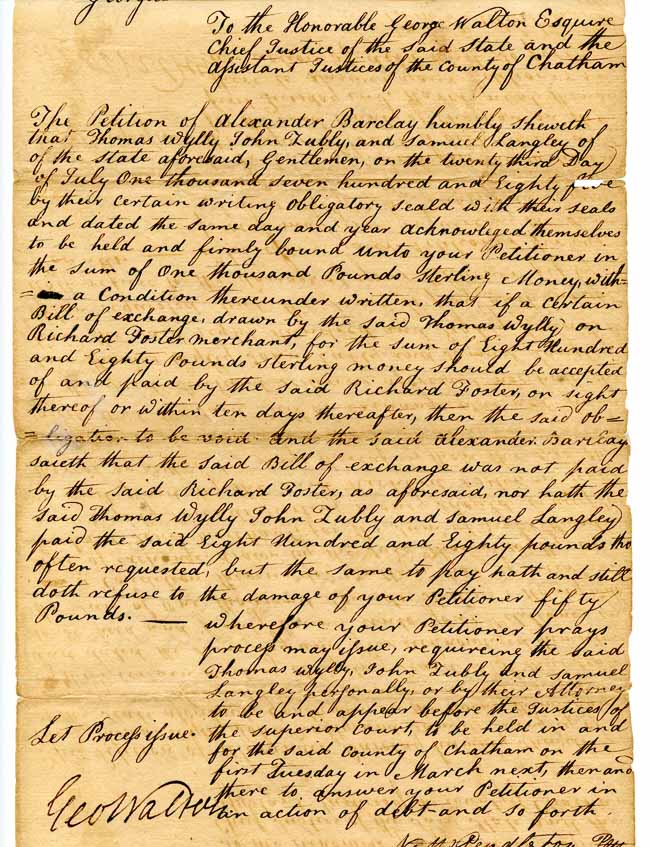 To the Honorable George Walton Esquire
Chief Justice of the said State and the
Assistant Justices of the County of Chatham
The Petition of Alexander Barclay humbly sheweth
that Thomas Wylly John Zubly, and Samuel Langley of
of the state aforesaid, Gentlemen, on the twenty third Day
of July One thousand seven hundred and Eighty five
by their certain writing obligatory seald with their seals
and dated the same day and year acknowleged themselves
to be held and firmly bound unto your Petitioner in
the sum of One thousand Pounds sterling Money, with=
= a Condition thereunder written, that if a certain
Bill of exchange, drawn by the said Thomas Wylly on
Richard Foster merchant, for the sum of Eight Hundred
and Eighty Pounds sterling money should be accepted
of and paid by the said Richard Foster, on sight
thereof or within ten days thereafter, then the said ob=
=ligation to be void. and the said Alexander Barclay
saieth that the said Bill of exchange was not paid
by the said Richard Foster, as aforesaid, nor hath the
said Thomas Wylly John Zubly and Samuel Langley
paid the said Eight Hundred and Eighty pounds tho
often requested, but the same to pay hath and still
doth refuse to the damage of your Petitioner fifty
Pounds. —
Wherefore your Petitioner prays
process may issue, requireing the said
Thomas Wylly, John Zubly and Samuel
Langley personally, or by their Attorney
to be and appear before the Justices of
the superior Court, to be held in and
for the said County of Chatham on the
first Tuesday in March next, then and
there to answer your Petitioner in
an action of debt and so forth.
Let Process issue.
Geo Walton
Pendleton